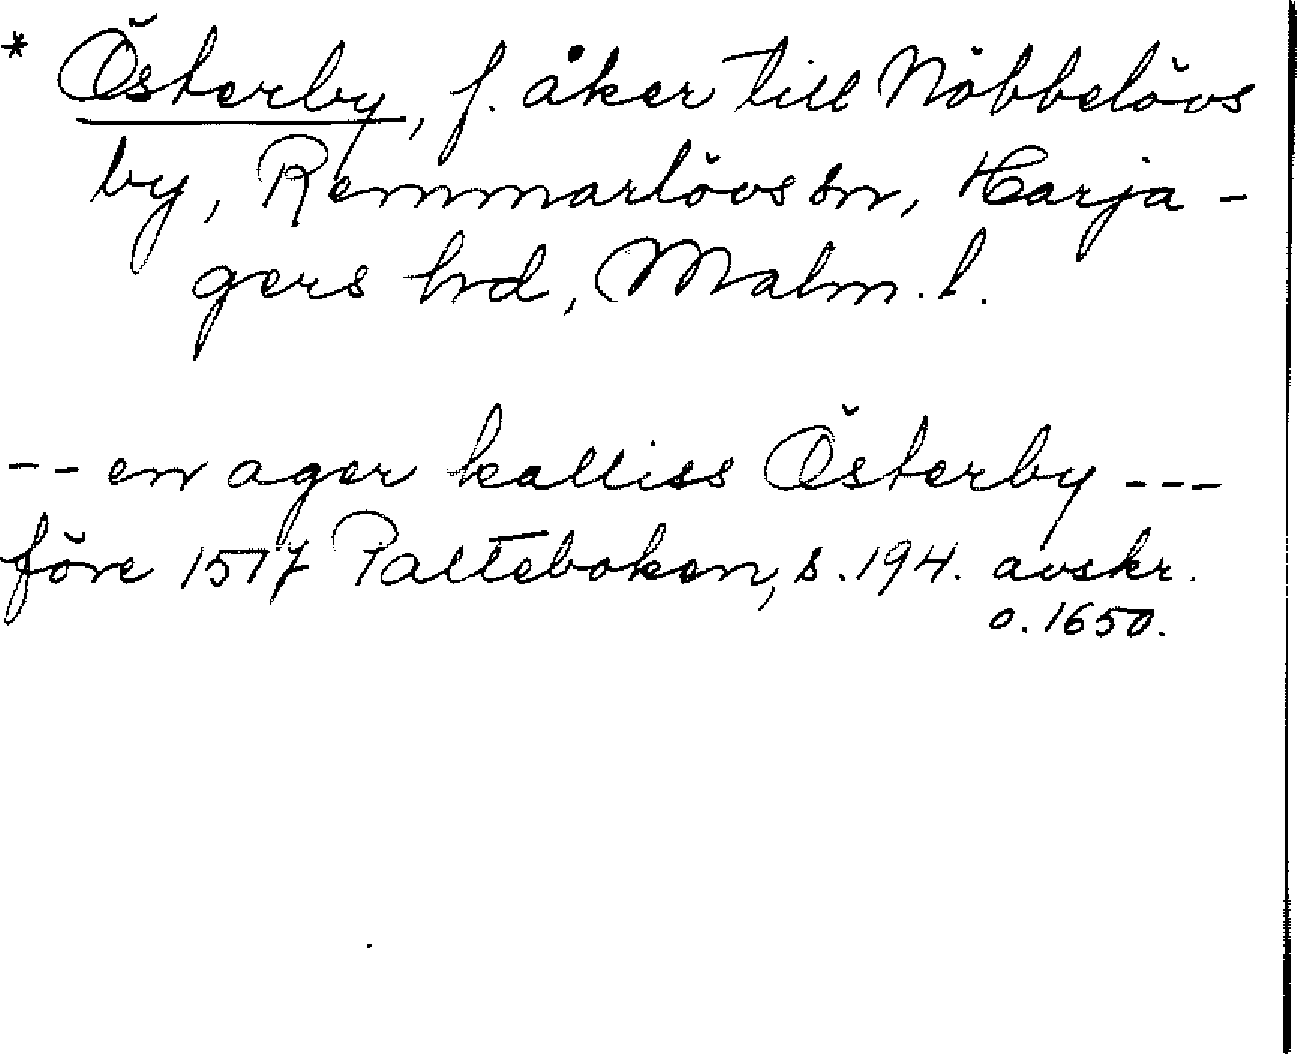 * Österby, f. åker till Nöbbelövs
by, Remmarlövs sn, Harja-
gers hd, Malm. l.
-- en ager kalliss Österby ---
före 1517 Palteboken, s. 194. avskr.
o. 1650.